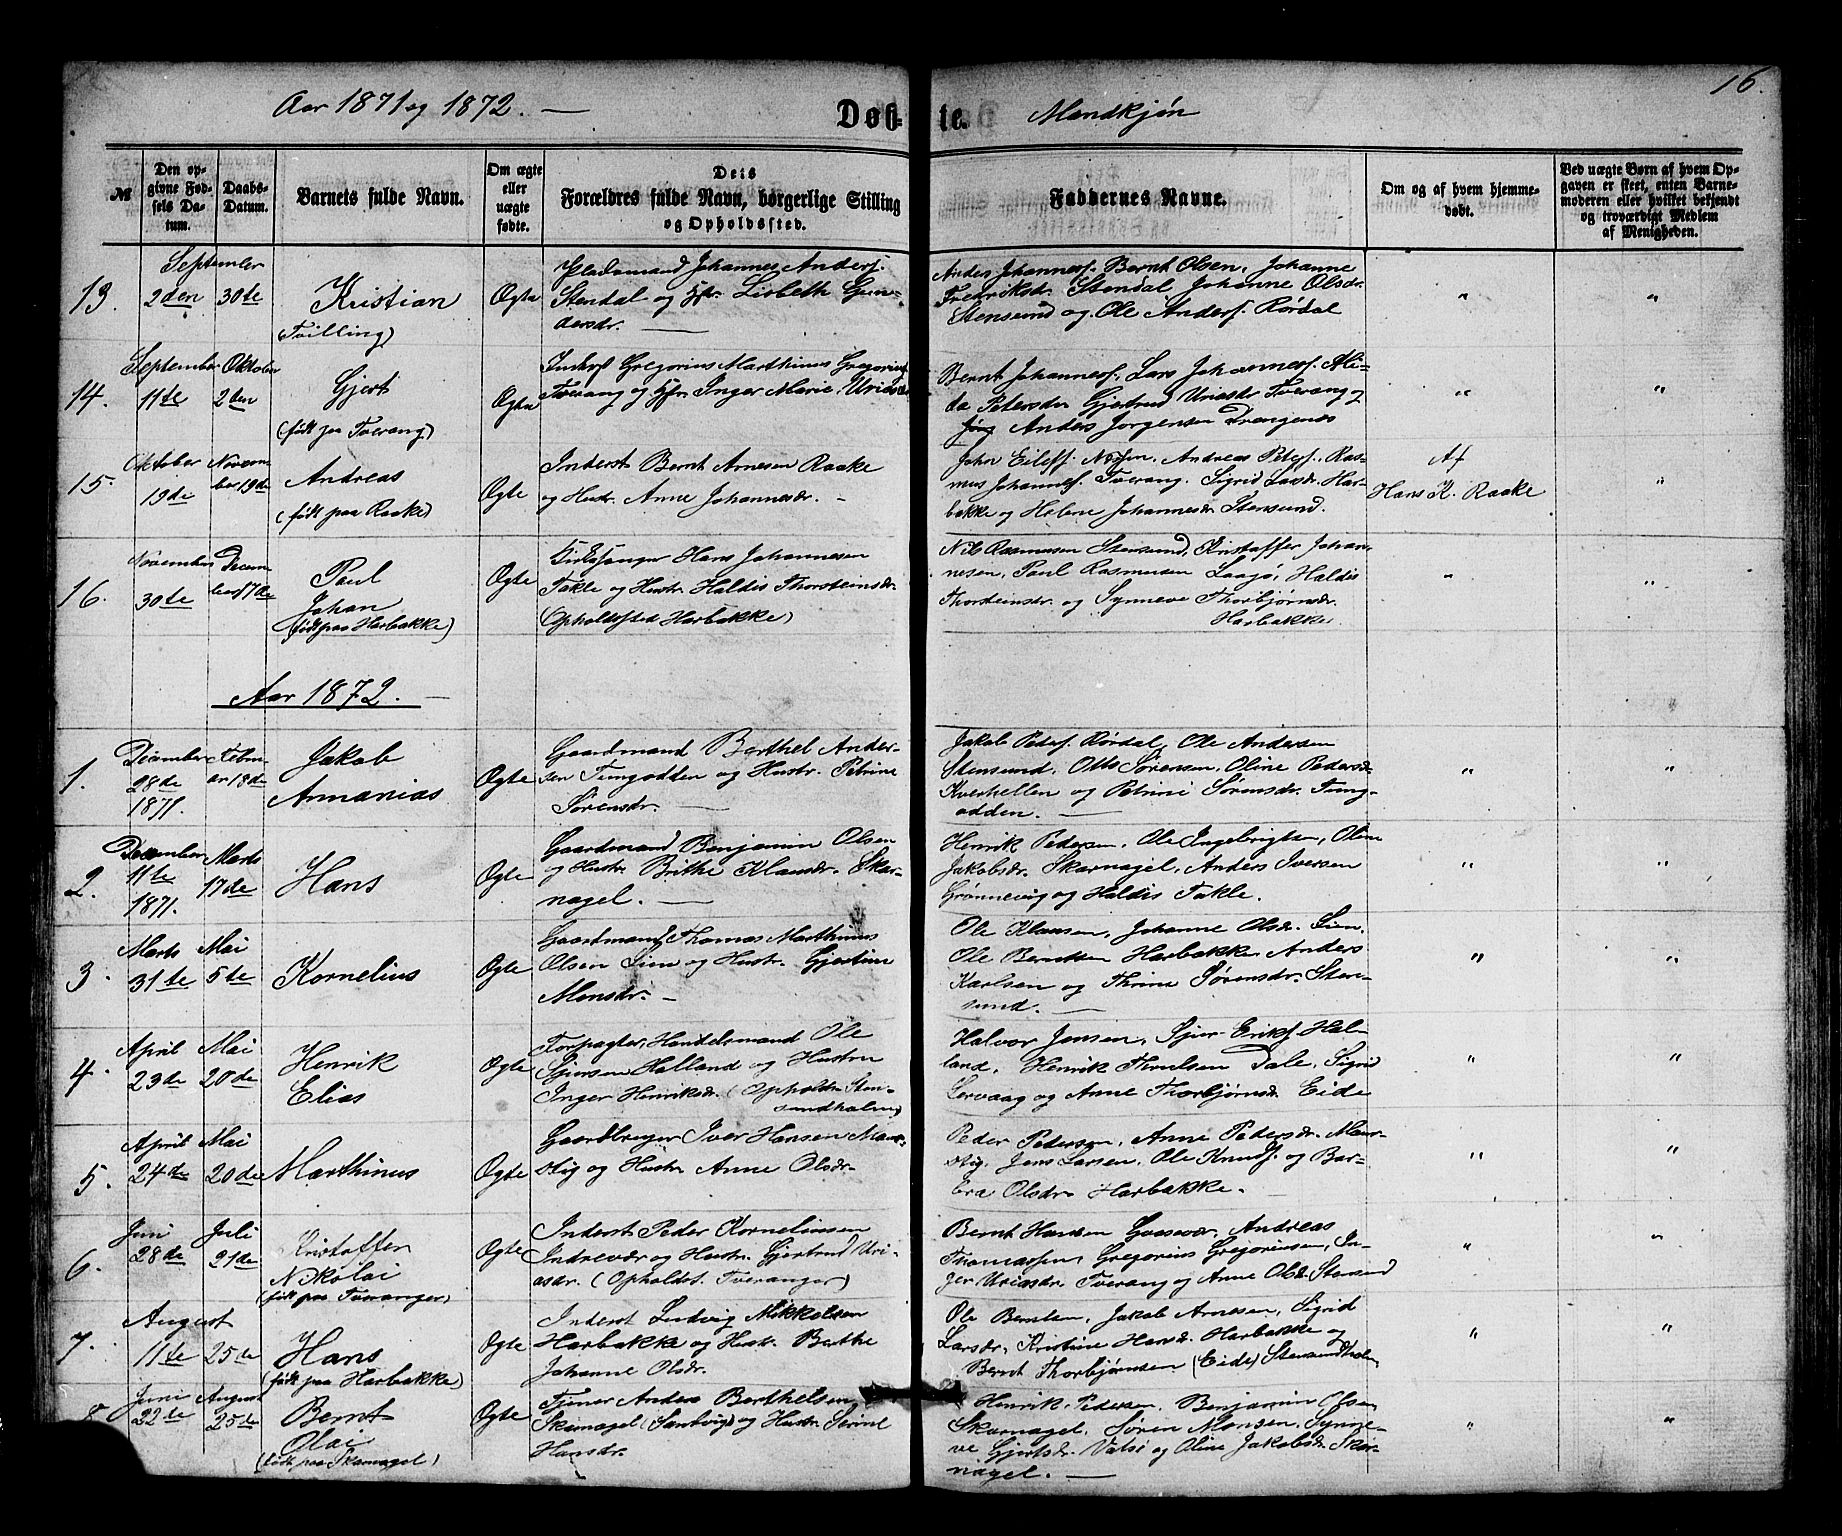 16.
Aar 1871 og 1872. —
Døb-te. Mandkjøn
№
Den op-
givne Fød-
sels Da-
tum.
Daabs-
Datum.
Barnets fulde Navn.
Om ægte
eller
uægte
fødte.
Dets
Forældres fulde Navn, borgerlige Stilling
og Opholdssted.
Faddernes Navne.
Om og af hvem hjemme-
døbt.
Ved uægte Børn af hvem Op-
gaven er skeet, enten Barne-
moderen eller hvilket bekjendt
og troværdigt Medlem
af Menigheden.
13.
September
2den 30te
Kristian
(Tvilling)
Ægte
Pladsmand Johannes Anders.
Stendal og Hstr. Lisbeth Gun-
dersdr. —
Anders Johanness. Bernt Olsen, Johanne
Fredriksdr Stendal, Johanne Olsdr.
Stensund og Ole Anders. Rørdal
" "
14.
September Oktober
11te 2den
Gjert
(født paa Tverang)
Ægte
Inderst Gregorius Marthinus
Tverang og Inger Marie
Bernt Johanness. Lars Johanness. Ali-
da Petersdr Gjertrud Uriasdr Tverang og
Anders Jørgensen Drengenes
" "
15.
Oktober Novem-
19de ber 19de
Andreas
(født paa Raake)
Ægte
Inderst Bernt Arnesen Raake
og Hustr. Anne Johannesdr. -
John Eilefs. Andreas Peters. Ras-
mus Johanness. Tverang. Sigrid Larsdr. Har-
bakke og Helene Johannesdr Stensund.
Af
Hans K. Raake
"
16.
November Decem-
30te ber 17de
Paul
Johan
(født paa Harbakke)
Ægte
Kirkesanger Hans Johannesen
Takle og Hustr. Haldis Thorsteinsdr.
(Opholdssted Harbakke)
Nils Rasmusen Stensund, Kristoffer Johan-
nesen, Paul Rasmusen Laagø, Haldis
Thorsteinsdr. og Synneve Thorbjørnsdr.
Harbakke
" "
Aar 1872. —
1.
December Febru-
28de ar 18de
1871.
Jakob
Annanias
Ægte
Gaardmand Berthel Ander-
sen Tungodden og Hustr. Petrine
Sørensdr. —
Jakob Peders. Rørdal, Ole Andersen
Stensund, Otto Sørensen, Oline Pedersdr
Kverhellen og Petrine Sørensdr. Tung-
odden. —
" "
2.
December Marts
11te 17de
1871.
Hans
Ægte
Gaardmand Benjamin Olsen
og Hustr. Brithe Klausdr. Skar-
nagel. —
Henrik Pedersen, Ole Ingebrigtsen, Oline
Jakobsdr. Skarnagel, Anders Iversen
Grønnevig og Haldis Takle.
" "
3.
Marts Mai
31te 5te
Kornelius
Ægte
Gaardmand Thomas Marthinus
Olsen Lien og Hustr. Gjertine
Monsdr. -
Ole Klausen, Johanne Olsdr. Lien.
Ole Berntsen Harbakke Anders
Karlsen og Thrine Sørensdr. Sten-
sund. —
" "
4.
April Mai
23de 20de
Henrik
Elias
Ægte
Forpagter, Handelsmand Ole
Sjursen Halland og Hustru
Inger Henriksdr. (Opholdst. Sten-
sundholm)
Halvor Jensen, Sjur Eriks. Hal-
land, Henrik Thrulsen Dale, Sigrid
Lervaag og Anne Thorbjørnsdr. Eide
" "
5.
April Mai
24de 20de
Marthinus
Ægte
Gaardbruger Iver Hansen Maur-
stig og Hustr. Anne Olsdr.
Peder Pedersen, Anne Pedersdr. Maur-
stig, Jens Larsen, Ole Knuds. og Bar-
bra Olsdr. Harbakke.
" "
6.
Juni Juli
28de 21de
Kristoffer
Nikolai
(født paa Tveranger)
Ægte
Inderst Peder Korneliusen
Indrevær og Hustr. Gjertrud Uri-
asdr. (Opholdst. Tveranger)
Bernt Hansen Gaasvær, Andreas
Thomassen, Gregorius Gregoriusen, In-
ger Uriasdr. Tverang og Anne Olsdr. Stensund
" "
7.
August
11te 25de
Hans
(født paa Harbakke)
Ægte
Inderst Ludvig Mikkelsen
Harbakke og Hustr. Berthe
Johanne Olsdr.
Ole Berntsen, Jakob Arnesen, Sigrid
Larsdr, Kristine Hansdr. Harbakke og
Bernt Thorbjørnsen (Eide) Stensundholm
" "
8.
Juni August
22de 25de
Bernt
Olai
(født paa Skarnagel)
Ægte
Tjener Anders Berthelsen
Skarnagel (Sandvig) og Hustr.
Hansdr.
Henrik Pedersen, Benjamin Olsen
Skarnagel, Søren Monsen, Synne-
ve Gjertsdr. Valsø og Oline Jakobsdr. Skar-
nagel. —
" "